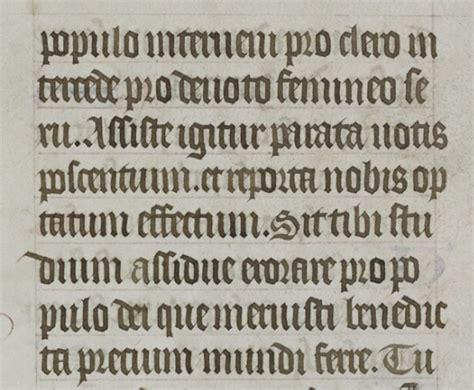 populo interueni pro clero in
tercede pro deuoto femineo se
xu. Assiste igitur parata uotis
poscentium. et reporta nobis op
tatum effectum. Sit tibi stu
dium assidue exorare pro po
pulo dei que meruisti benedic
ta precium mundi ferre. Tu